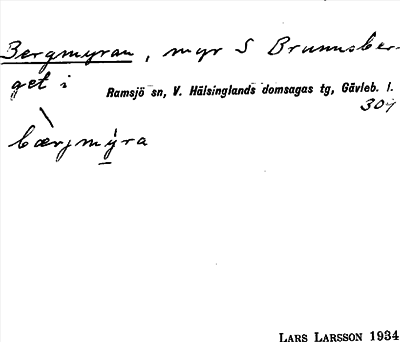 Bergmyran, myr S Brunnsber-
get i
Ramsjö sn, V. Hälsinglands domsagas tg, Gävleb. l.
304
bærjmy̱ra
LARS LARSSON 1934